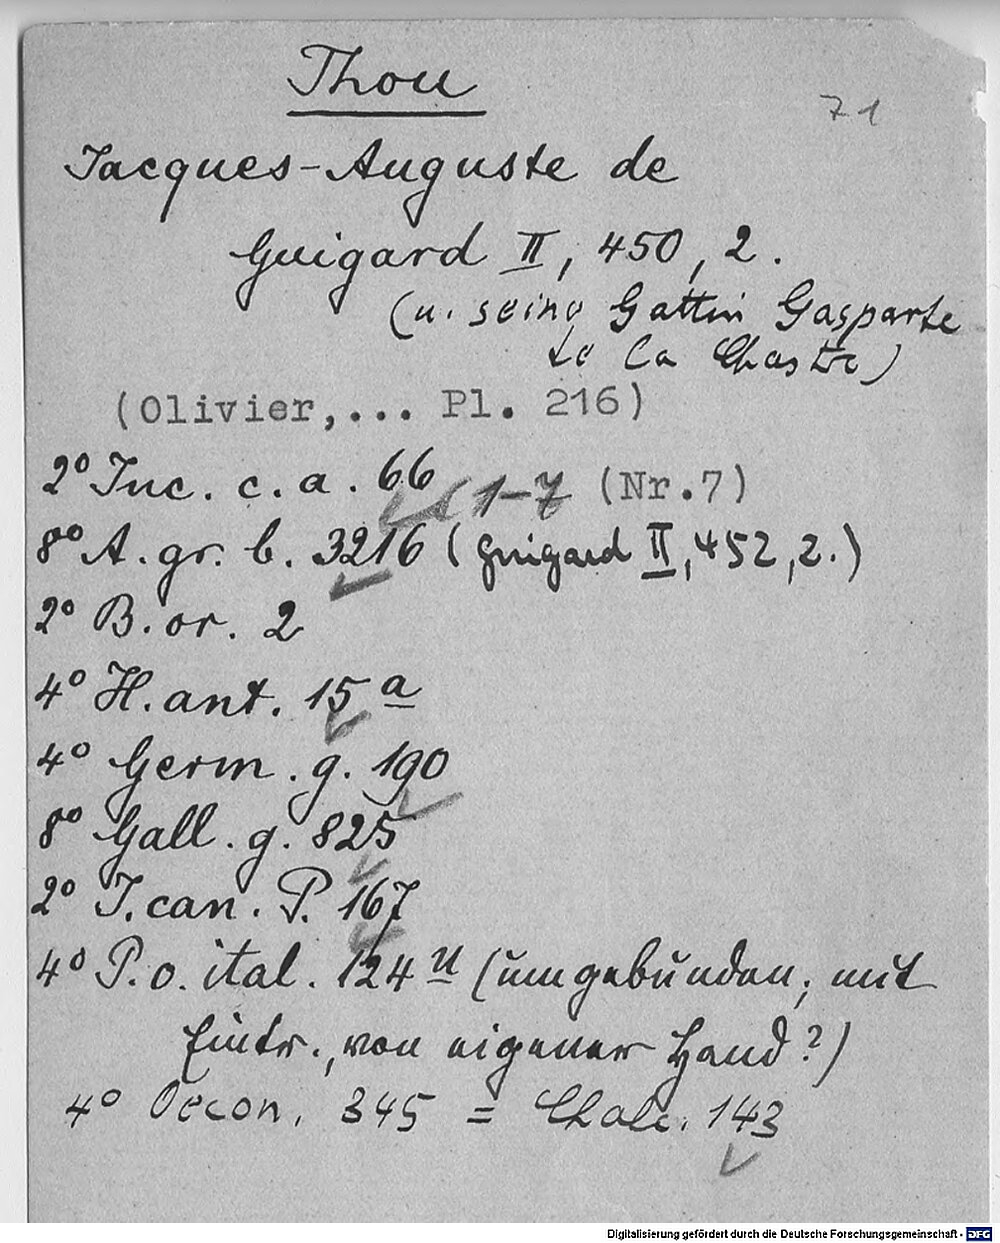 Thou
71
Jacques-Auguste de
Guigard II, 450, 2.
(u. seine Gattin Gasparte
de la Chastre)
(Olivier,... Pl. 216)
2° Inc. c. a. 66 (1-7 (Nr.7)
8° A. gr. b. 3216 (Guigard II, 452, 2.)
2° B. or. 2
4° H. ant. 15 a
4° Germ. g. 190
8° Gall. g. 825
2° J. can. P. 167
4° P. o. ital. 124 u (umgebunden; mit
Eintr., von eigener Hand?)
4° Oecon. 345 = Chalc. 143
Digitalisierung gefördert durch die Deutsche Forschungsgemeinschaft - DFG